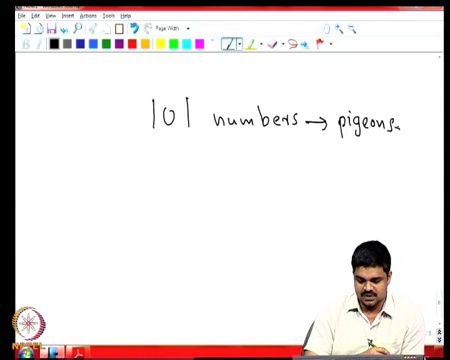 File Edit View Insert Actions Tools Help
Page Width
B I
101 numbers → pigeons